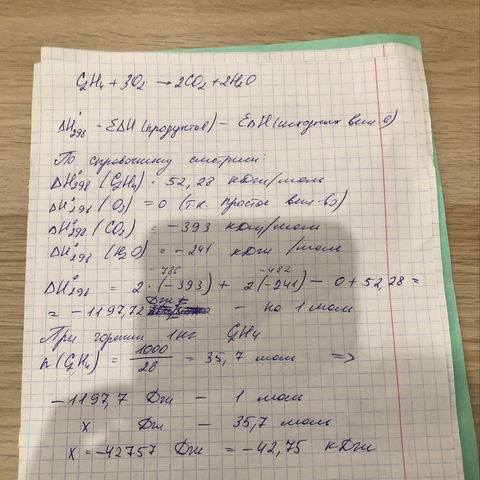 C₂H₄ + 3O₂ → 2CO₂ + 2H₂O
ΔH°₂₉₈ = ΣΔH (продуктов) − ΣΔH (исходных вещ-в)
По справочнику смотрим:
ΔH°₂₉₈ (C₂H₄) = 52,28 кДж/моль
ΔH°₂₉₈ (O₂) = 0 (т.к. простое вещ-во)
ΔH°₂₉₈ (CO₂) = −393 кДж/моль
ΔH°₂₉₈ (H₂O) = −241 кДж /моль
−786 −482
ΔH°₂₉₈ = 2·(−393) + 2(−241) − 0 + 52,28 =
= −1197,72 Дж − на 1 моль
При горении 1кг C₂H₄
n(C₂H₄) = 1000/28 = 35,7 моль =>
−1197,7 Дж − 1 моль
x Дж − 35,7 моль
x = −42757 Дж = −42,75 кДж